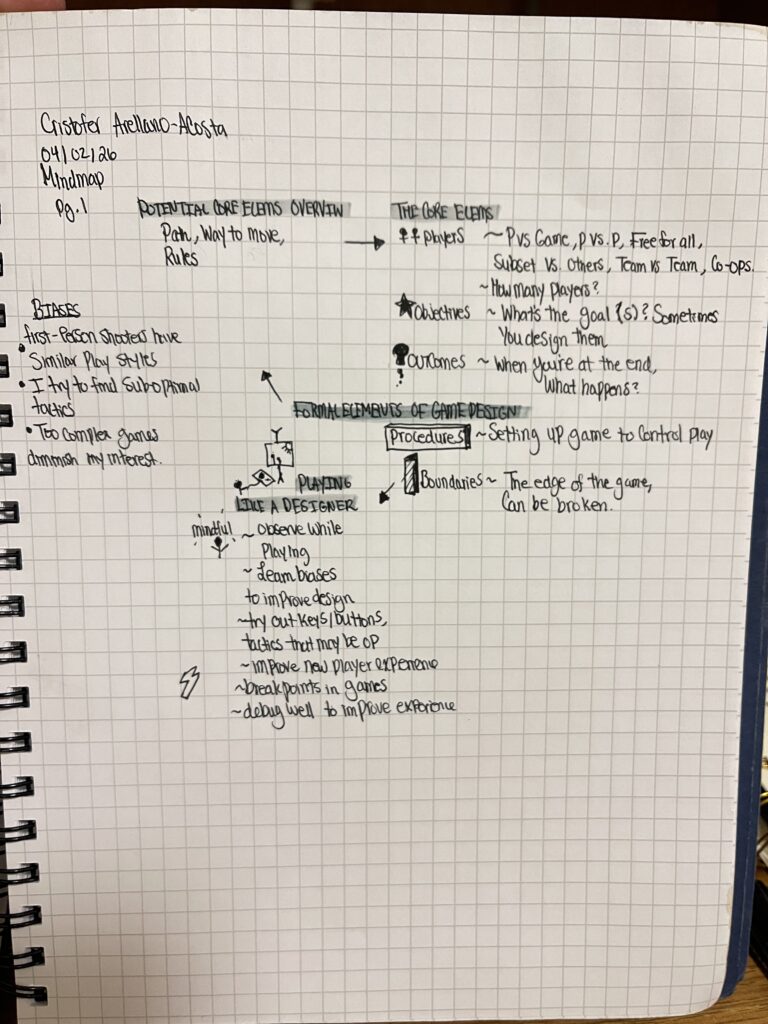 Cristofer Arellano-Acosta
04/02/26
Mindmap
Pg.1
POTENTIAL CORE ELEMS OVERVIW
Path, Way to move,
Rules
THE CORE ELEMS
Players ~ P vs Game, P vs. P, Free for all,
Subset vs. Others, Team vs Team, Co-ops.
~ How many players?
Objectives ~ What's the goal (s)? Sometimes
You design them
Outcomes ~ When you're at the end,
What happens?
BIASES
first-Person Shooters have
Similar Play styles
• I try to find Suboptimal
tactics
• Too Complex games
diminish my interest.
FORMAL ELEMENTS OF GAME DESIGN
Procedures ~ Setting up game to Control play
Boundaries ~ The edge of the game,
Can be broken.
PLAYING
LIKE A DESIGNER
mindful
~ Observe while
Playing
~ Learn biases
to improve design
~ try out keys/buttons,
tactics that may be OP
~ improve new player experience
~ breakpoints in games
~ debug well to improve experience